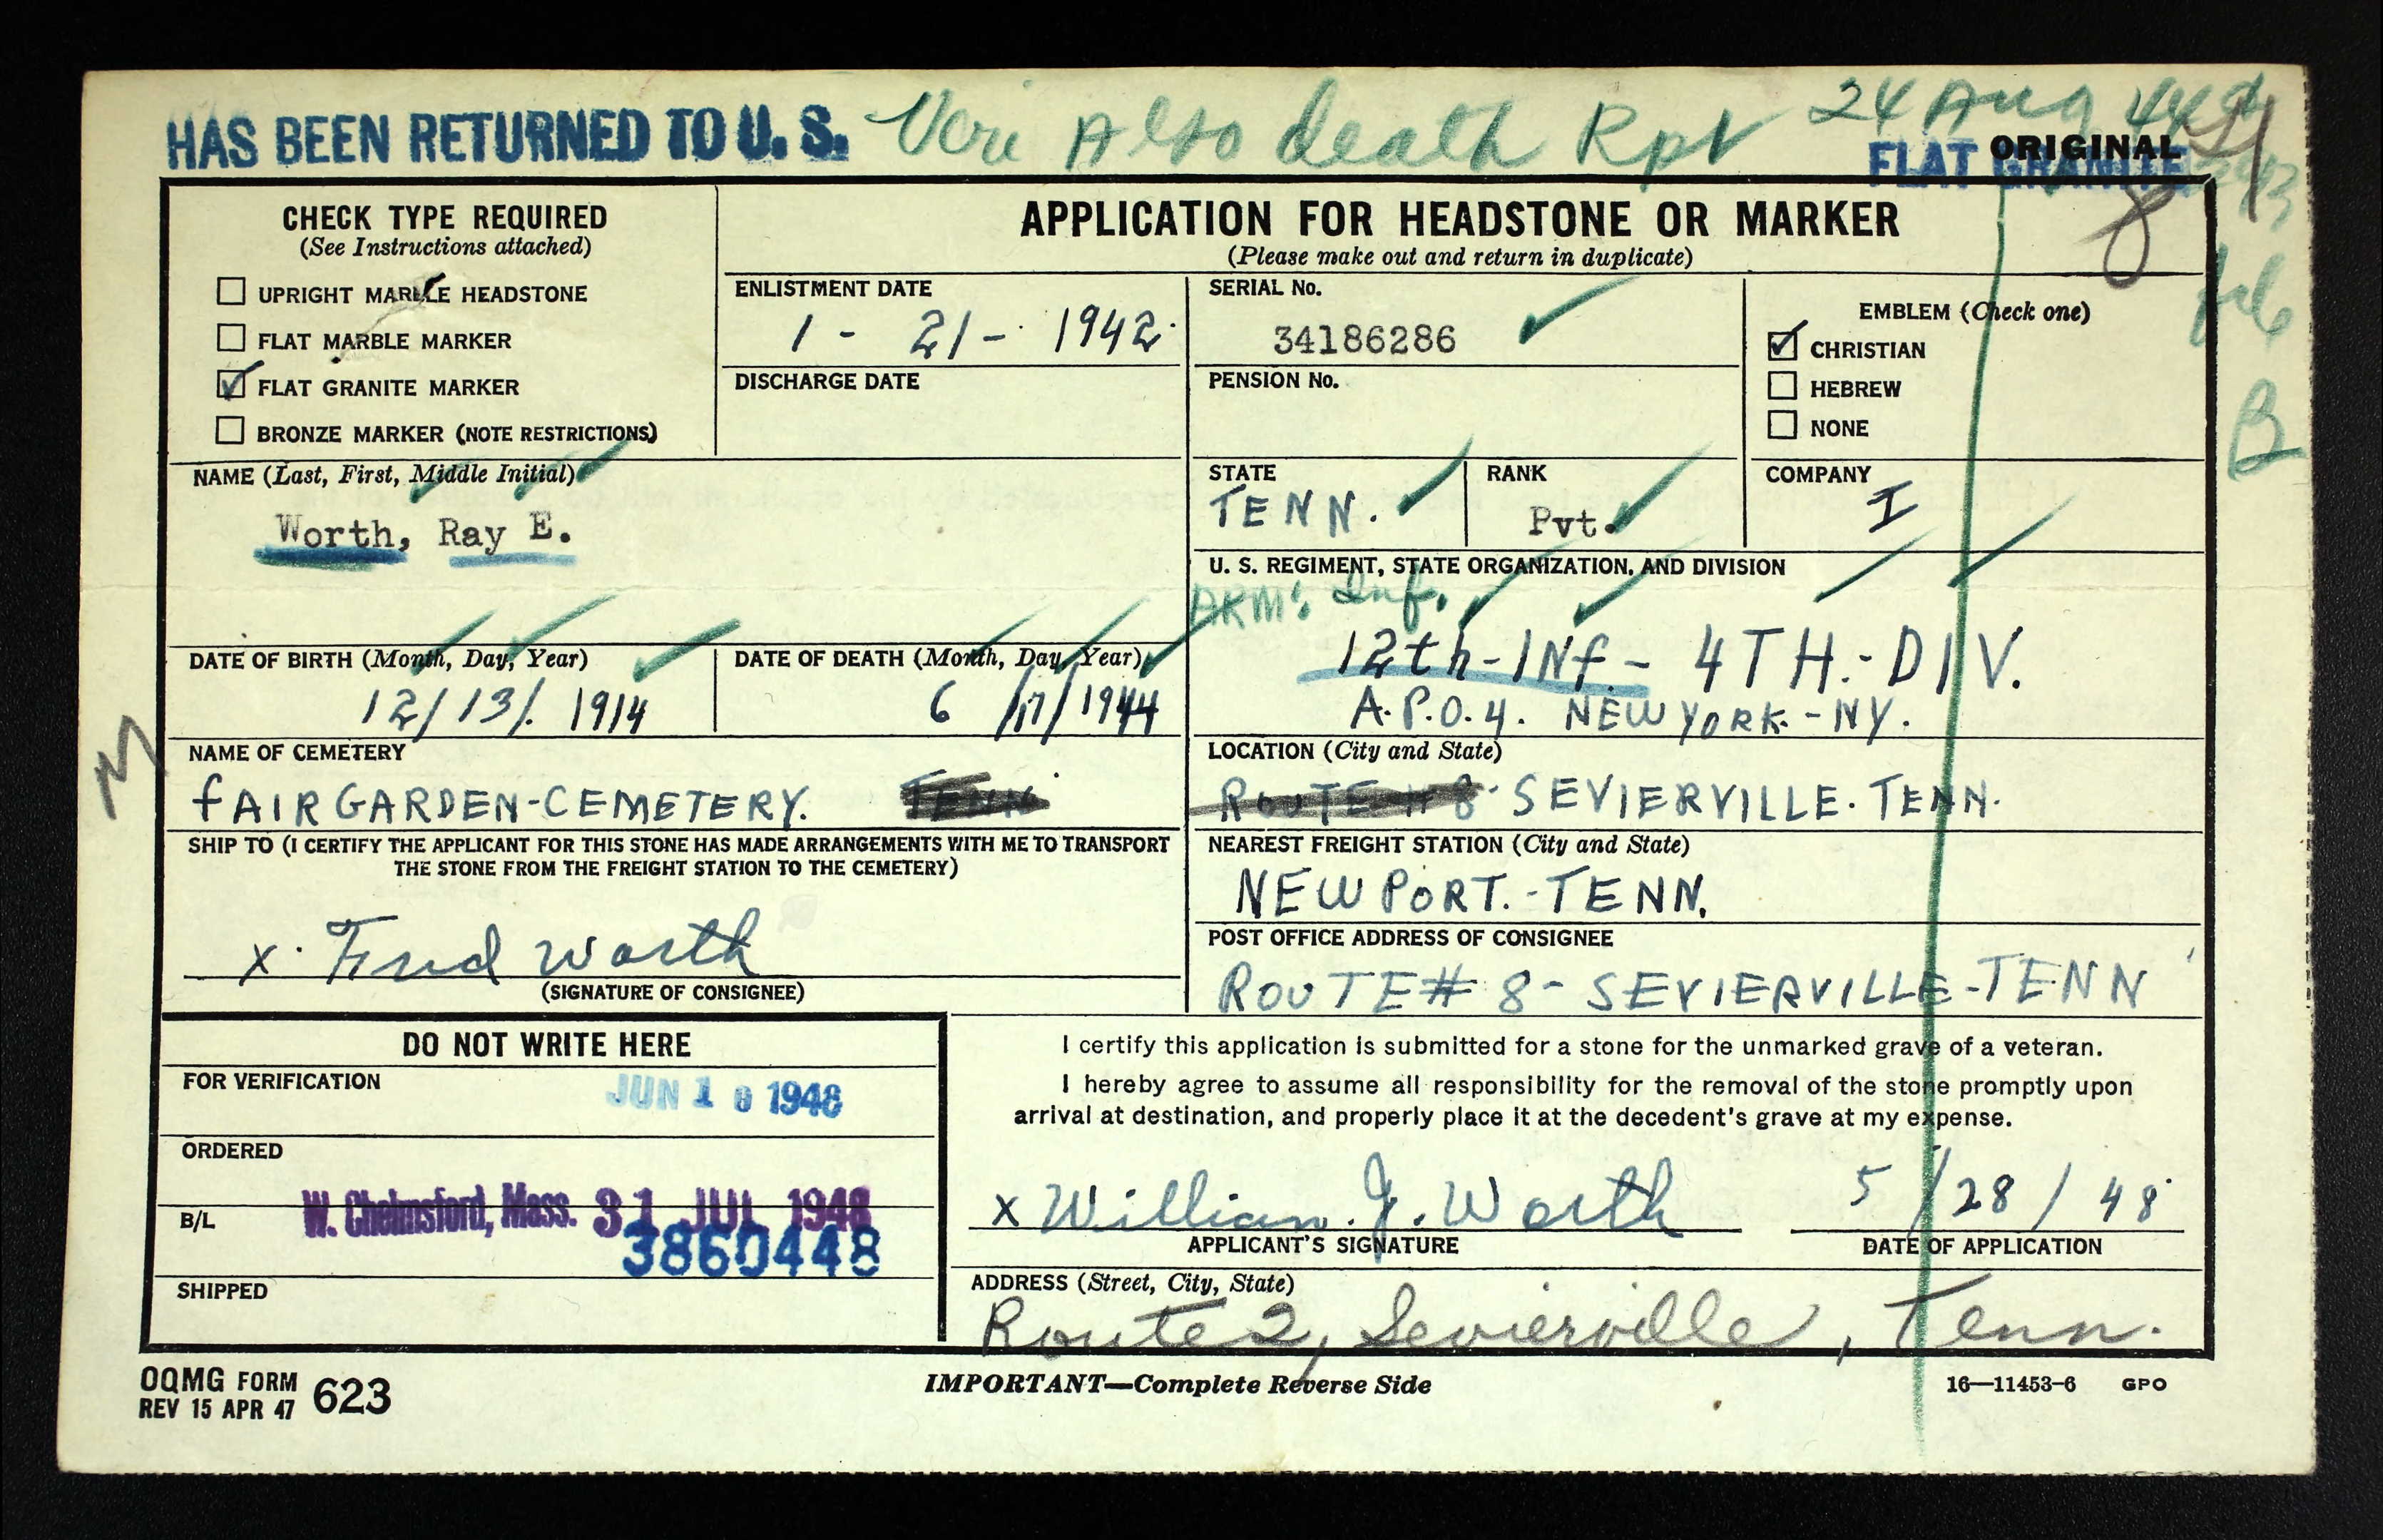 HAS BEEN RETURNED TO U. S. Veri Also death Rpt 24 Aug 44
ORIGINAL
FLAT GRANITE
CHECK TYPE REQUIRED
(See Instructions attached)
UPRIGHT MARBLE HEADSTONE
FLAT MARBLE MARKER
FLAT GRANITE MARKER
BRONZE MARKER (NOTE RESTRICTIONS)
APPLICATION FOR HEADSTONE OR MARKER
(Please make out and return in duplicate)
ENLISTMENT DATE
1 - 21 - 1942
DISCHARGE DATE
SERIAL No.
34186286
PENSION No.
EMBLEM (Check one)
CHRISTIAN
HEBREW
NONE
8
B
NAME (Last, First, Middle Initial)
Worth, Ray E.
STATE
TENN.
RANK
Pvt.
COMPANY
I
U. S. REGIMENT, STATE ORGANIZATION, AND DIVISION
Inf.
12th-INf - 4TH.-DIV.
A.P.O.4. NEW YORK.-NY.
DATE OF BIRTH (Month, Day, Year)
12/13/. 1914
DATE OF DEATH (Month, Day, Year)
6 /17/1944
M
NAME OF CEMETERY
fAIRGARDEN-CEMETERY. TENN
LOCATION (City and State)
ROUTE # 8 SEVIERVILLE. TENN.
SHIP TO (I CERTIFY THE APPLICANT FOR THIS STONE HAS MADE ARRANGEMENTS WITH ME TO TRANSPORT
THE STONE FROM THE FREIGHT STATION TO THE CEMETERY)
x. Fred Worth
(SIGNATURE OF CONSIGNEE)
NEAREST FREIGHT STATION (City and State)
NEWPORT.-TENN.
POST OFFICE ADDRESS OF CONSIGNEE
ROUTE# 8- SEVIERVILLE-TENN
DO NOT WRITE HERE
FOR VERIFICATION
JUN 1 6 1948
ORDERED
B/L
W. Chelmsford, Mass. 31 JUL 1948
3860448
SHIPPED
I certify this application is submitted for a stone for the unmarked grave of a veteran.
I hereby agree to assume all responsibility for the removal of the stone promptly upon
arrival at destination, and properly place it at the decedent's grave at my expense.
x William. J. Worth 5 /28 / 48
APPLICANT'S SIGNATURE
DATE OF APPLICATION
ADDRESS (Street, City, State)
Route 2, Sevierville, Tenn.
OQMG FORM 623
REV 15 APR 47
IMPORTANT—Complete Reverse Side
16—11453-6 GPO